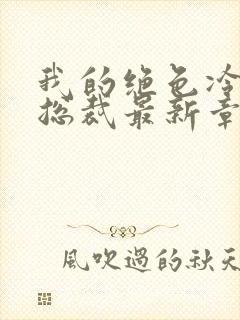 我的绝色冷
总裁最新章
風吹過的秋天